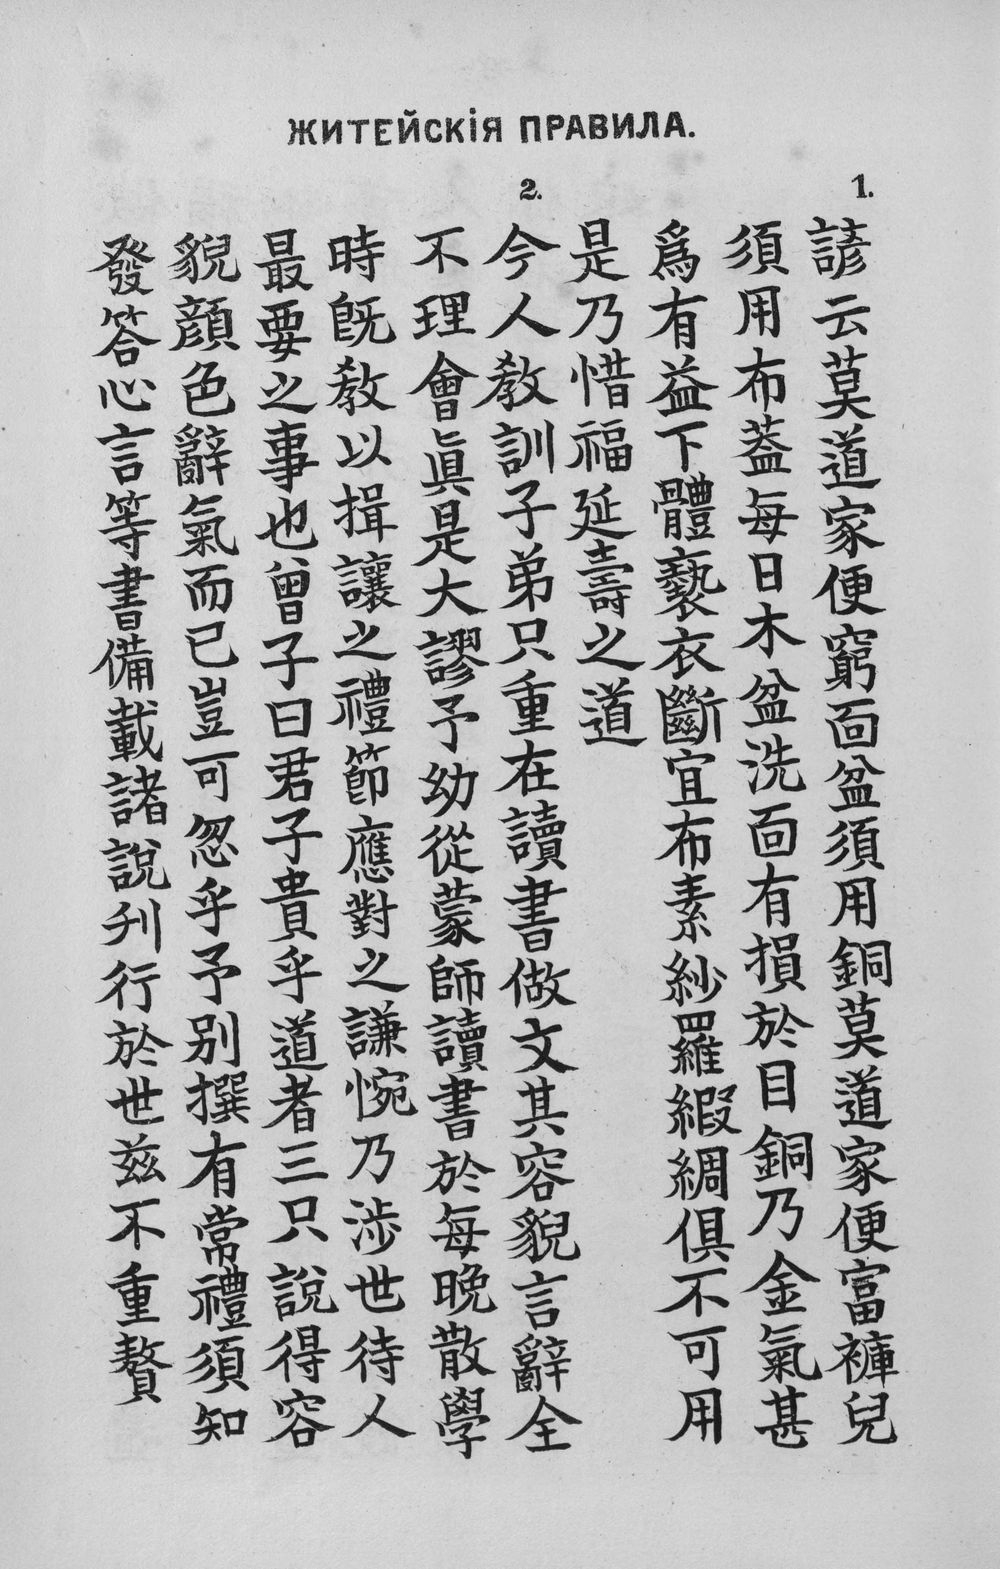 ЖИТЕЙСКІЯ ПРАВИЛА.
1.
諺云莫道家便窮面盆須用銅莫道家便富褲兒
須用布葢每日木盆洗面有損於目銅乃金氣甚
爲有益下體褻衣斷宜布素紗羅緞綢俱不可用
是乃惜福延壽之道
2.
今人敎訓子弟只重在讀書做文其容貌言辭全
不理會眞是大謬予幼從蒙師讀書於每晚散學
時旣敎以揖讓之禮節應對之謙惋乃涉世待人
最要之事也曾子曰君子貴乎道者三只說得容
貌顔色辭氣而已豈可忽乎予别撰有常禮須知
發答心言等書備載諸說刋行於世茲不重贅